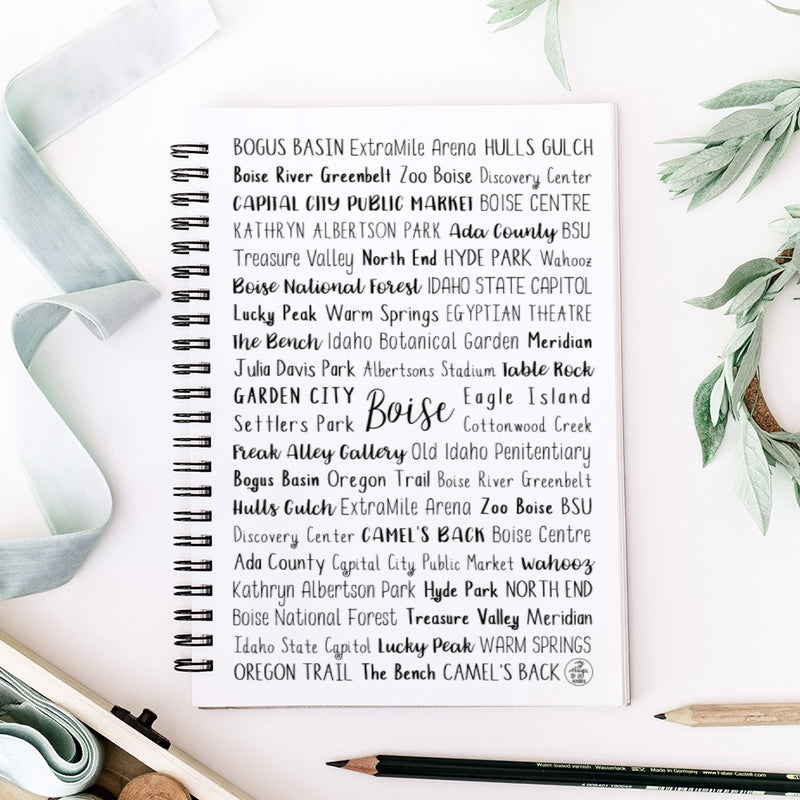 BOGUS BASIN ExtraMile Arena HULLS GULCH
Boise River Greenbelt Zoo Boise Discovery Center
CAPITAL CITY PUBLIC MARKET BOISE CENTRE
KATHRYN ALBERTSON PARK Ada County BSU
Treasure Valley North End HYDE PARK Wahooz
Boise National Forest IDAHO STATE CAPITOL
Lucky Peak Warm Springs EGYPTIAN THEATRE
The Bench Idaho Botanical Garden Meridian
Julia Davis Park Albertsons Stadium Table Rock
GARDEN CITY Eagle Island
Boise
Settlers Park Cottonwood Creek
Freak Alley Gallery Old Idaho Penitentiary
Bogus Basin Oregon Trail Boise River Greenbelt
Hulls Gulch ExtraMile Arena Zoo Boise BSU
Discovery Center CAMEL'S BACK Boise Centre
Ada County Capital City Public Market Wahooz
Kathryn Albertson Park Hyde Park NORTH END
Boise National Forest Treasure Valley Meridian
Idaho State Capitol Lucky Peak WARM SPRINGS
OREGON TRAIL The Bench CAMEL'S BACK
Water-based varnish Wasserlack Made in Germany www.Faber-Castell.com